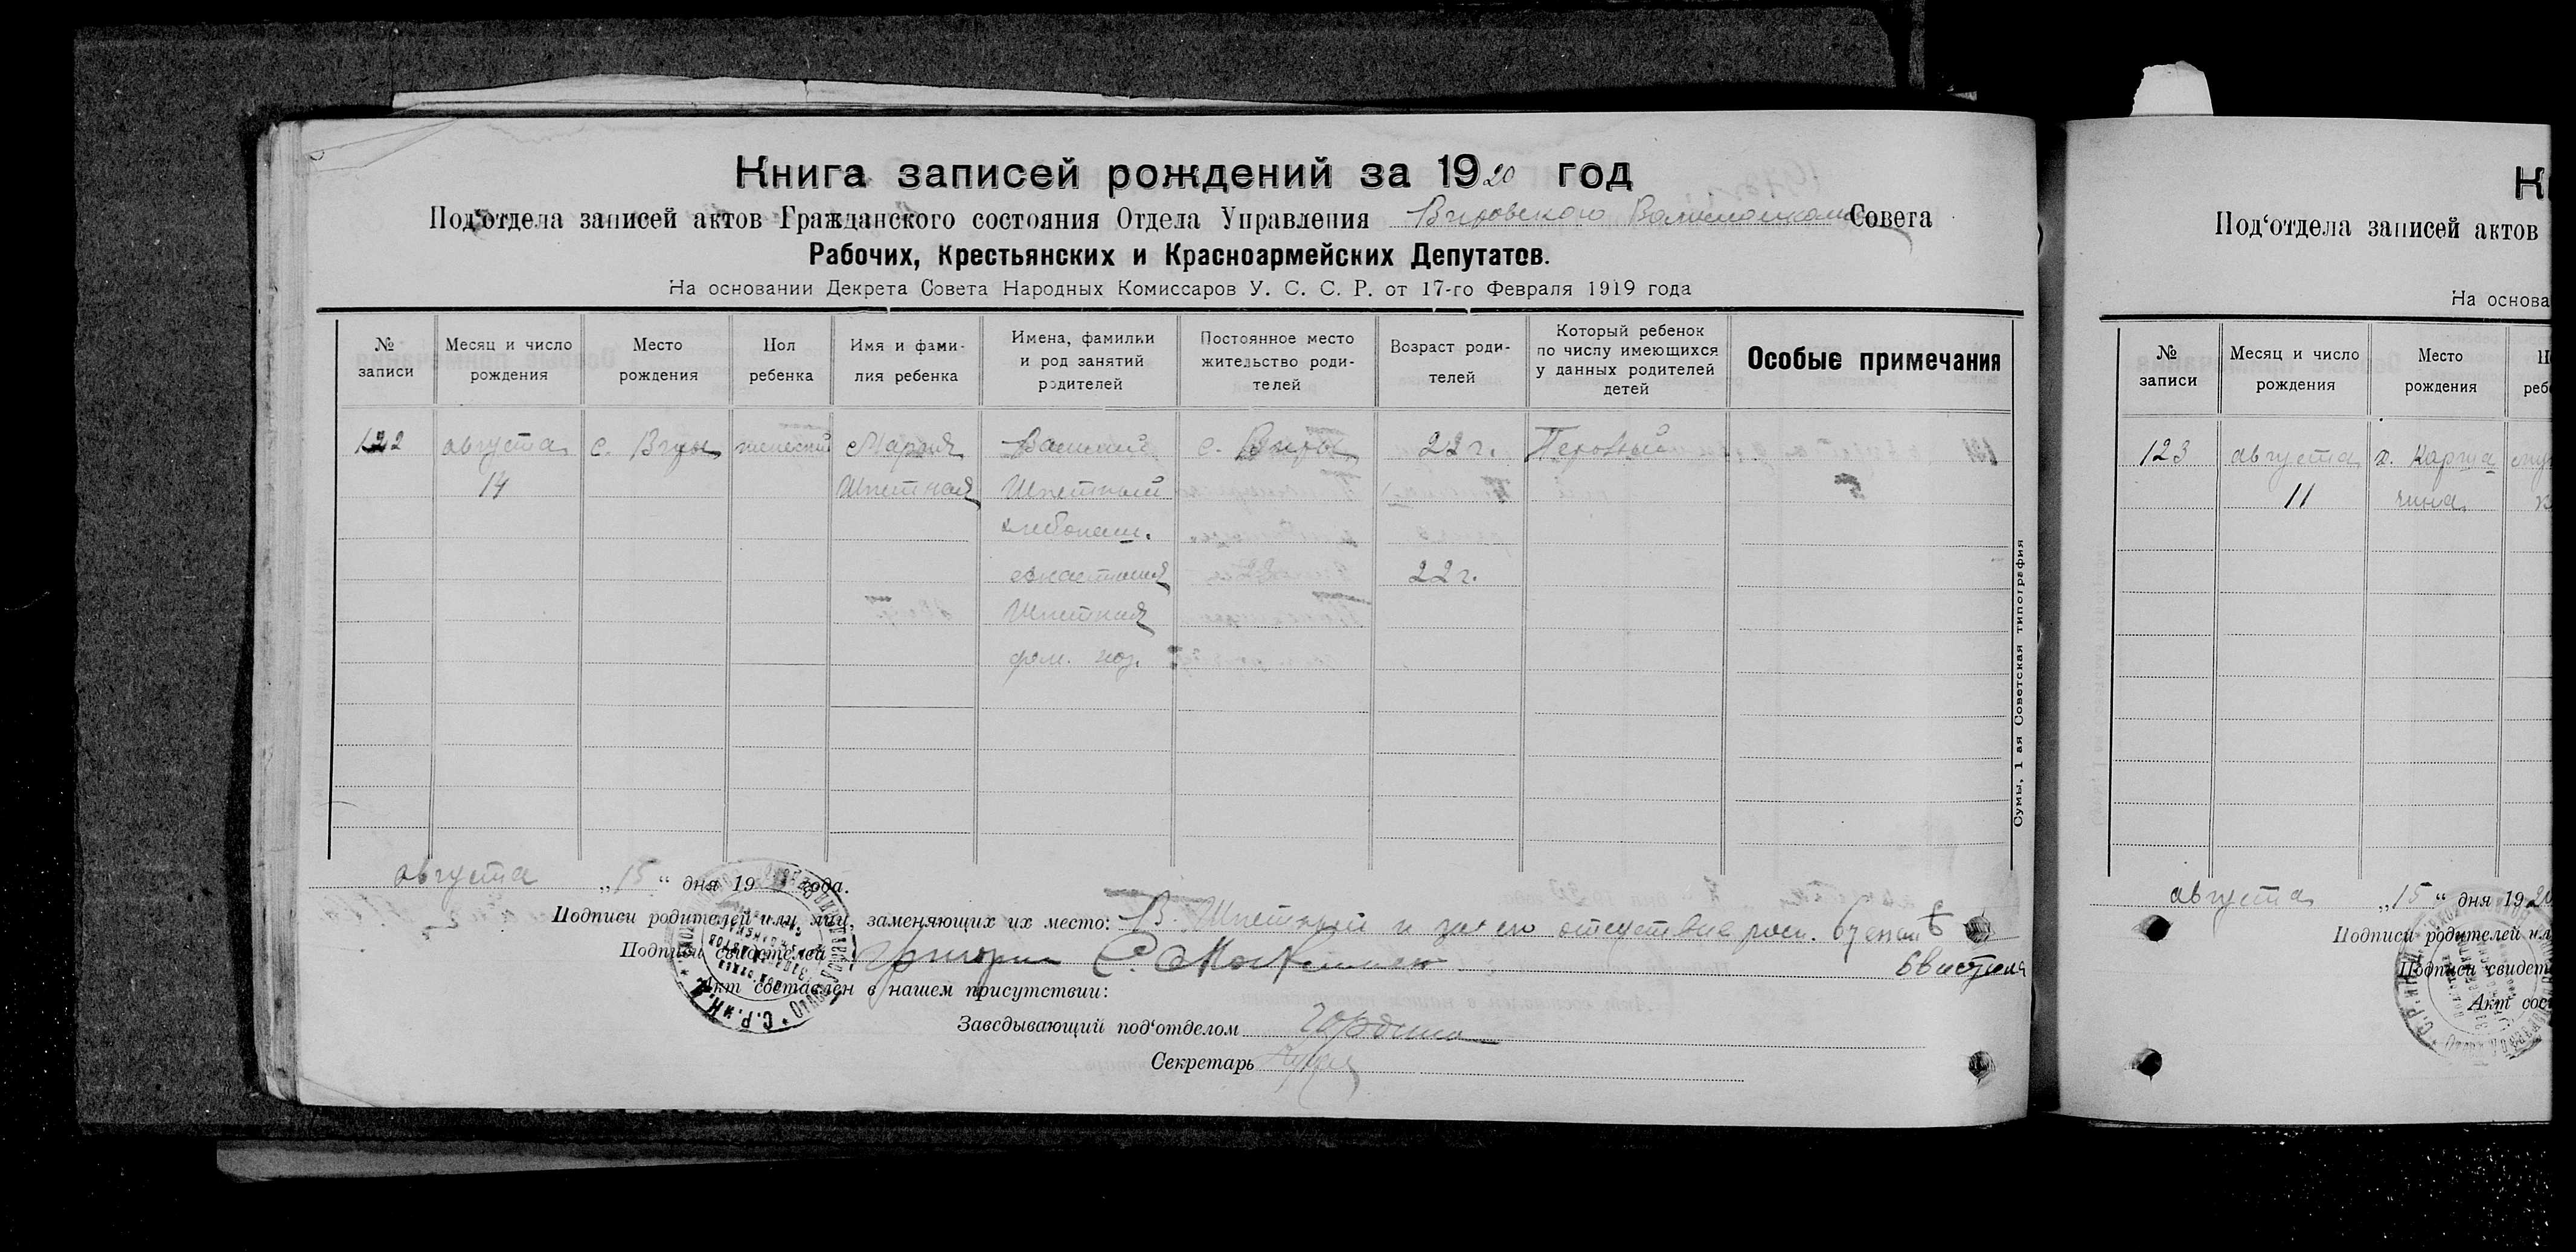 Книга записей рождений за 1920 год
Под‘отдела записей актов Гражданского состояния Отдела Управления Вировского Совета
Рабочих, Крестьянских и Красноармейских Депутатов.
На основании Декрета Совета Народных Комиссаров У. С. С. Р. от 17-го Февраля 1919 года
№ записи
Месяц и число рождения
Место рождения
Пол ребенка
Имя и фамилия ребенка
Имена, фамилии и род занятий родителей
Постоянное место жительство родителей
Возраст родителей
Который ребенок по числу имеющихся у данных родителей детей
Особые примечания
122 августа с. Виры женский Мария Василий с. Виры 22 г. Первый
14 Шпетная Шпетный
хлебопаш.
22 г.
Шпетная
дом. хоз.
Сумы, 1 ая Советская типография
августа „15“ дня 19 года.
Подписи родителей или лиц, заменяющих их место: В. Шпетный и за его отсутствие
Подписи свидетелей Григорий С.
Акт составлен в нашем присутствии:
Заведывающий под‘отделом
Секретарь
К
Под‘отдела записей актов
На основа
№ записи
Месяц и число рождения
Место рождения
123 августа х.
11
августа „15“ дня 1920
Подписи родителей ил
Подписи свидет
Акт сос